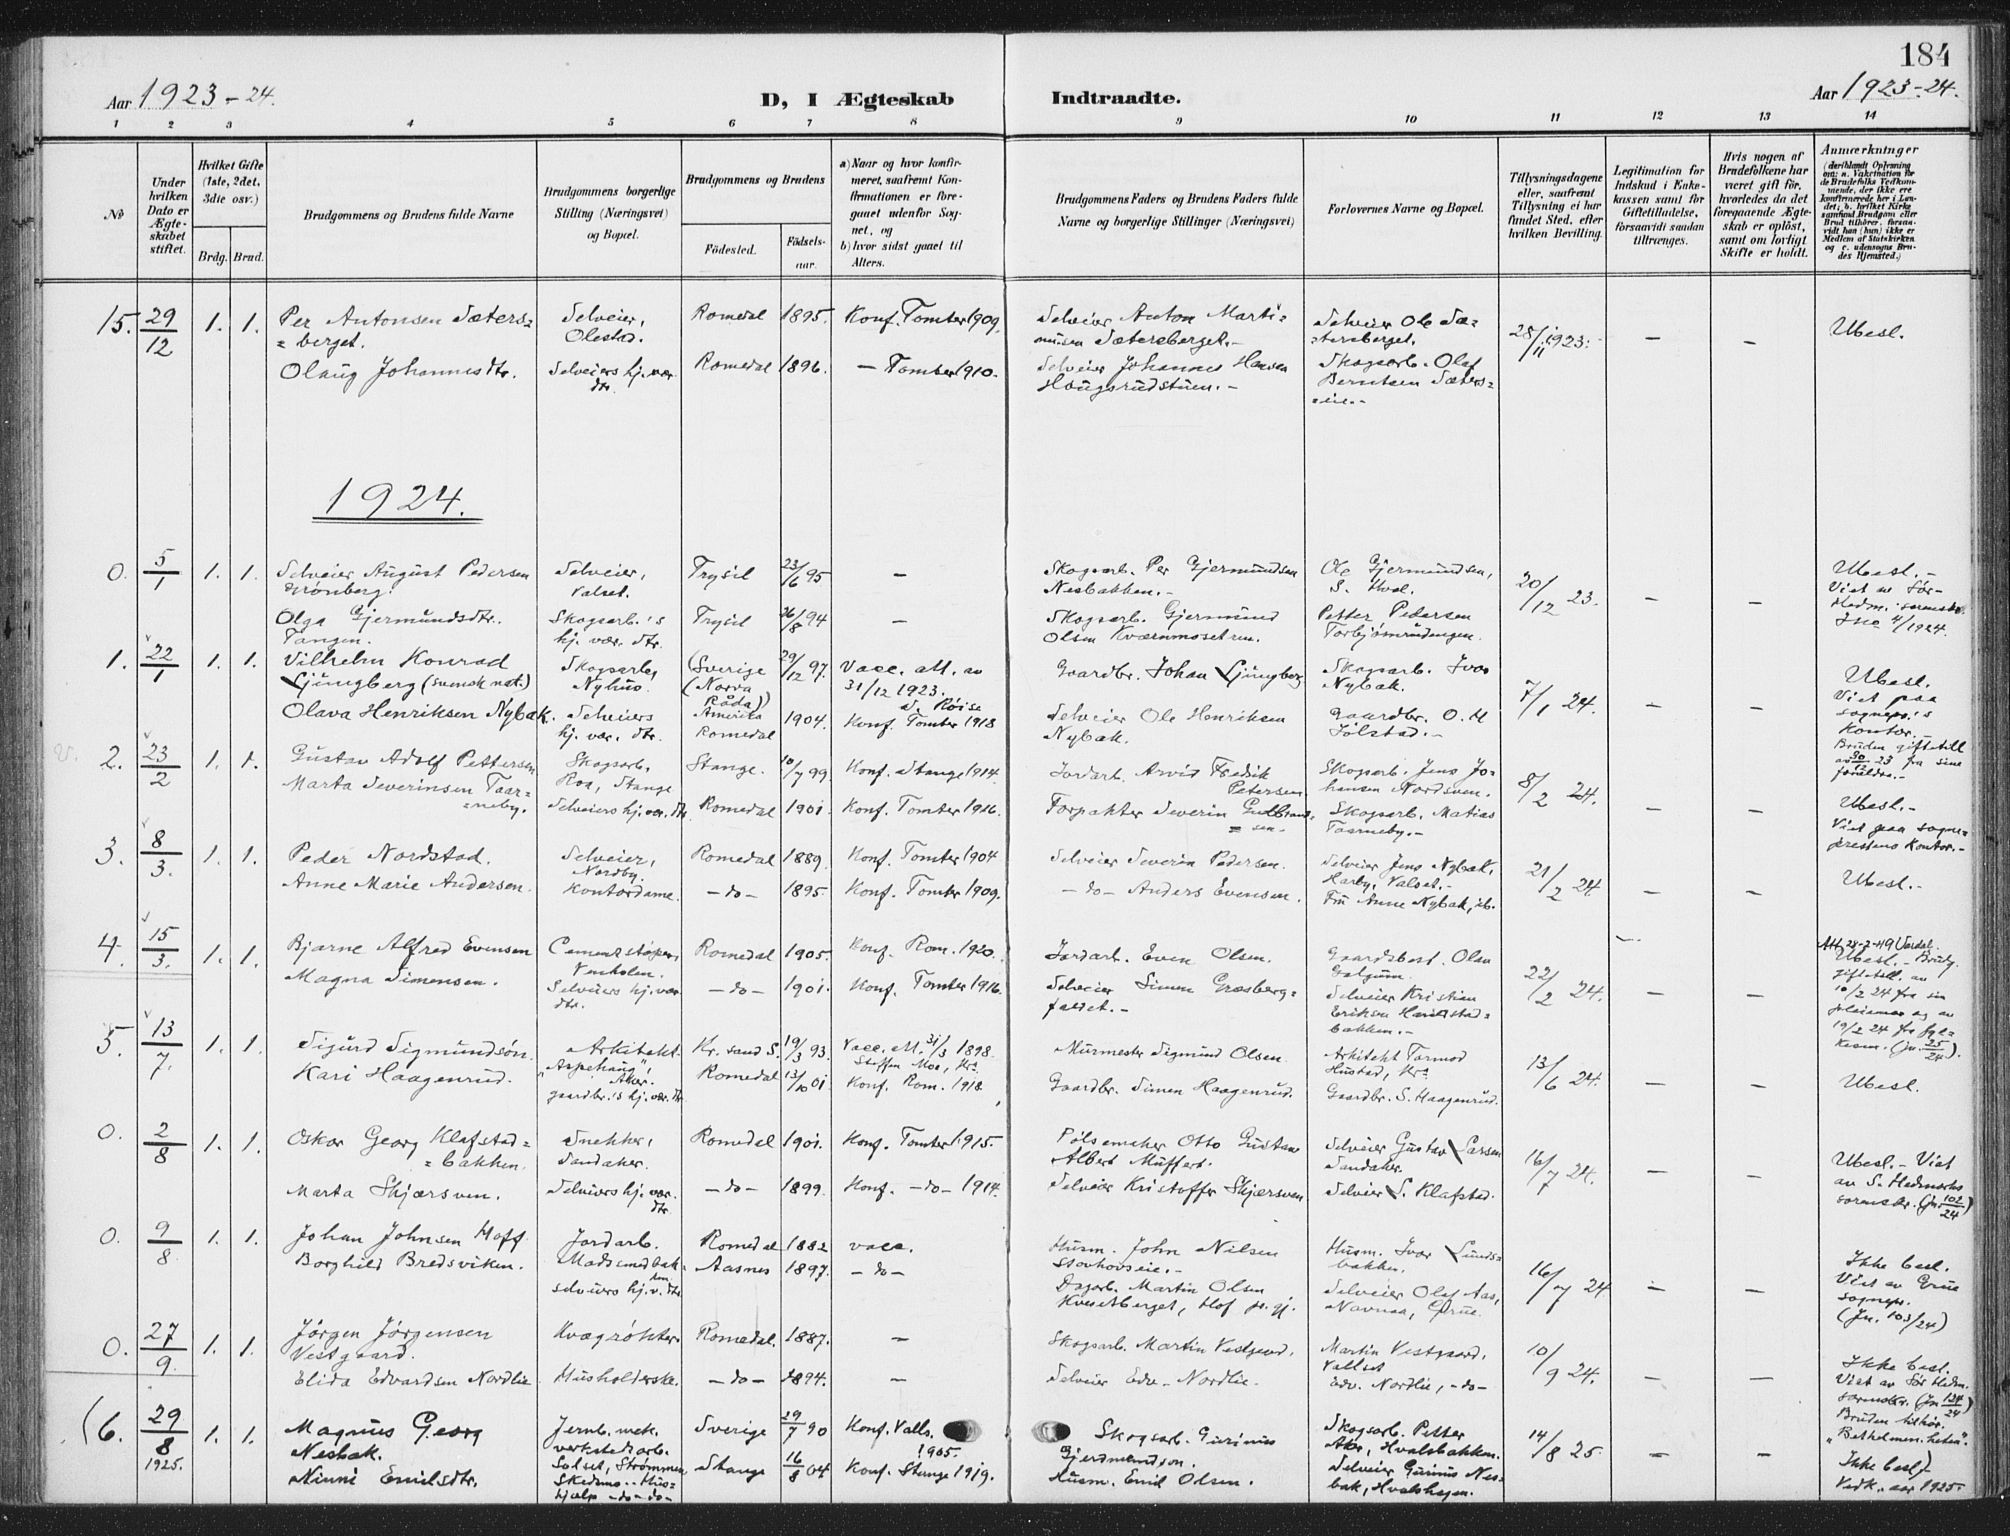 184
Aar 1923-24.
D, I Ægteskab
Indtraadte.
Aar 1923-24.
1 2 3 4 5 6 7 8 9 10 11 12 13 14
No
Under hvilken Dato er Ægteskabet stiftet.
Hvilket Gifte (1ste, 2det, 3die osv.)
Brdg. Brud.
Brudgommens og Brudens fulde Navne
Brudgommens borgerlige Stilling (Næringsvei) og Bopæl.
Brudgommens og Brudens
Födested.
Födselsaar.
a) Naar og hvor konfirmeret, saafremt Konfirmationen er foregaaet udenfor Sognet, og
b) hvor sidst gaaet til Alters.
Brudgommens Faders og Brudens Faders fulde Navne og borgerlige Stillinger (Næringsvei)
Forlovernes Navne og Bopæl.
Tillysningsdagene eller, saafremt Tillysning ei har fundet Sted, efter hvilken Bevilling.
Legitimation for Indskud i Enkekassen samt for Giftetilladelse, forsaavidt saadan tiltrænges.
Hvis nogen af Brudefolkene har været gift før, hvorledes da det foregaaende Ægteskab er oplöst, samt om lovligt Skifte er holdt.
Anmærkninger
15. 29/12 1. 1. Per Antonsen Sæters= Selveier, Romedal 1895. Konf. Tomter 1909. Selveier Anton Marti= Selveier Ole Sæ= 28/11 1923. — — Ubesl.
=berget. Olestad. nusen Sætersberget.- tersberget.
Olaug Johannesdtr. Selveiers hj.vær. dtr. Romedal 1896. — Tomter 1910. Selveier Johannes Hansen Skogsarb. Olaf
Haugsrudstuen.- Berntsen Sæters=
=eie.-
1924.
0. 5/1 1. 1. Selveier August Pedersen Selveier, Trysil 23/6 95 — Skogsarb. Per Gjermundsen Ole Gjermundsen, 20/12 23. — — Ubesl.-
Grønberg. Valset. Nesbakken.- S. Hval. Viet av Sør-
Olga Gjermundsdtr. Skogsarb.'s Trysil 26/8 94 — Skogsarb. Gjermund Petter Pedersen Hedm.
Tangen. hj. vær. dtr. Olsen Kværnmoseteren.
1. 22/1 1. 1. Vilhelm Konrad Skogsarb., (Sverige 29/12 97. Vacc. att. av Gaardbr. Johan Ljungberg Skogsarb. Ivar 7/1 24. — — Ubesl.
Ljungberg (svensk nat.) Nyhus. (Norra Råda)) 31/12 1923. Nybak. Viet paa
Olava Henriksen Nybak. Selveiers Amerika 1904. Konf. Tomter 1918 Selveier Ole Henriksen Gaardbr. O. H sognepr.'s
hj. vær. dtr. Romedal Nybak. Jølstad.- Kontor.-
2. 23/2 1. 1. Gustav Adolf Pettersen Skogsarb., Stange. 10/7 99 Konf. Stange 1914. Jordarb. Arvid Fredrik Skogsarb. Jens Jo= 8/2 24. — — Bruden giftetill
Roa, Stange Petersen hansen Nordsven. av 30/12 23 fra sine forældre.-
Marta Severinsen Taar= Selveiers hj.vær. dtr. Romedal 1901 Konf. Tomter 1916. Forpakter Severin Gulbrand= Skogsarb. Matias Ubesl.-
=neby. =sen.- Taarneby.- Viet paa sogne=
prestens Kontor.-
3. 8/3. 1. 1. Peder Nordstad. Selveier, Romedal 1889. Konf. Tomter 1904 Selveier Severin Pedersen. Selveier Jens Nybak, 21/2 24 — — Ubesl.-
Nordby. Harby, Valset.-
Anne Marie Andersen. Kontordame. -do- 1895. Konf. Tomter 1909. -do- Anders Evensen. Fru Anne Nybak, ib.
4. 15/3. 1. 1. Bjarne Alfred Evensen Cementstøper, Romedal 1905. Konf. Rom. 1920. Jordarb. Even Olsen. Gaardsbest. Olav 22/2 24. — — Att. 28-2-49 Verdal.
Venholen. Galgum. Ubesl.- Brudg.
Magna Simensen. Selveiers hj.vær. dtr. -do- 1901. Konf. Tomter 1916. Selveier Simen Græsberg= Selveier Kristian giftetill. av
faldet.- Eriksen Harildstad= 10/2 24 fra sin
bakken.-
5. 13/7. 1. 1. Sigurd Sigmundsøn. Arkitekt. Kr. sand S. 19/3 93. Vacc. att. 31/3 1898. Murmester Sigmund Olsen. Arkitekt Tormod 13/6 24. — — 19/2 24 fra fyl=
"Aspehaug", Aker. Steffen Moe, Kra Hustad, Kra kesm. (Jn. 25/24).
Kari Haagenrud. gaardbr.'s hj.vær. dtr. Romedal 13/10 01 Konf. Rom. 1918. Gaardbr. Simen Haagenrud. Gaardbr. S. Haagenrud. Ubesl.
0. 2/8 1. 1. Oskar Georg Klafstad= Snekker, Romedal 1901. Konf. Tomter 1915. Pølsemaker Otto Gustav Selveier Gustav Lassen 16/7 24. — — Ubesl.- Viet
=bakken. Sandaker. Albert Muffert. Sandaker. av S. Hedmarks
Marta Skjærsven. Selveiers hj. vær. dtr. -do- 1899. Konf. -do- 1914. Selveier Kristoffer Skjærsven Selveier L. Klafstad. sorenskr. (Jn. 102/24)
0. 9/8 1. 1. Johan Johnsen Hoff Jordarb. Romedal 1882 vacc. Husm. John Nilsen Husm. Ivar Lunds= 16/7 24 — — Ikke besl.
Madssmedbakken Stovhovseie.- bakken. Viet av Grue
Borghild Bredsviken. selveiers hj.v. dtr. Aasnes 1897. -do- Dagarb. Martin Olsen Selveier Olaf Aas, sognepr.
Kvesetberget, Hof pr. gj. Navnaa, Grue. (Jn. 103/24)
0. 27/9. 1. 1. Jørgen Jørgensen Kvægrøkter. Romedal. 1887. — Skogsarb. Martin Vestgaard. Martin Vestgaard, 10/9 24. — — Ikke besl.
Vestgaard. Vallset Viet av Sør Hedm.
Elida Edvardsen Nordlie Husholderske. -do- 1894. — Selveier Edv. Nordlie. Edv. Nordlie, -do- sorenskr. (Jn 124/24)
Bruden tilhør.
(6. 29/8 1925. 1. 1. Magnus Georg Jernb. mek. Sverige 29/7 90 Konf. Valls. 1905. Skogsarb. Gurinus Skogsarb. Petter 14/8 25 — — "Betlehmen. heten".
Nesbak. verkstedarb. Gjerdmundson. Aas, Hvalsbakken. Ikke besl)-
Minni Emilsdtr. Solset, Strømmen, Skedsmo.. Hus= Stange 16/8 04 Konf. Stange 1919. Husm. Emil Olsen. Selveier Gurinus Nes= Vedk. aar 1925.
hjælp -do-do- bak, Hvalshagen.